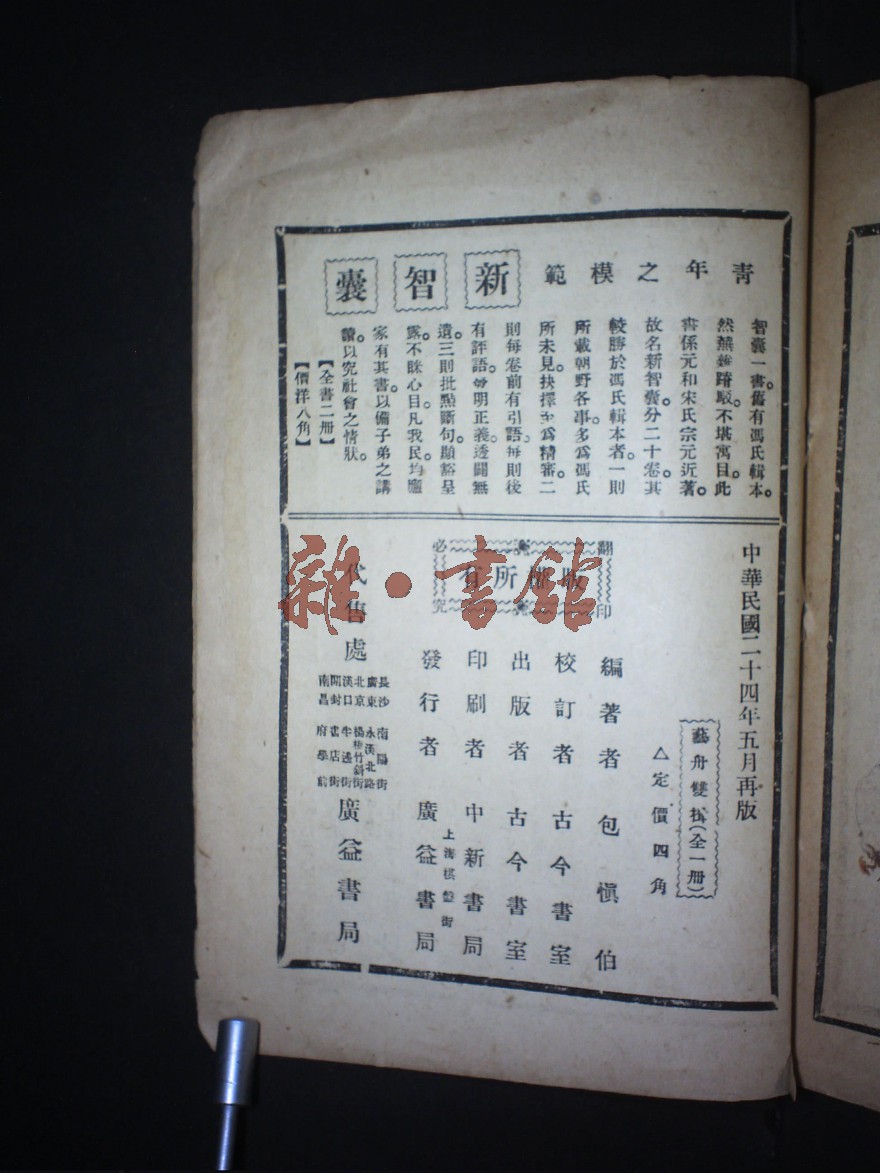 青年之模範
新智囊
智囊一書。舊有馮氏輯本。
然蕪雜踳駁。不堪寓目。此
書係元和宋氏宗元近著。
故名新智囊。分二十卷。其
較勝於馮氏輯本者。一則
所載朝野各事。多爲馮氏
所未見。抉擇至爲精審。二
則每卷前有引語。每則後
有評語。發明正義。透闢無
遺。三則批點斷句。顯豁呈
露。不眯心目。凡我民均應
家有其書。以備子弟之講
讀。以究社會之情狀。
【全書二册】
【價洋八角】
中華民國二十四年五月再版
藝舟雙楫(全一册)
△定價四角
翻印必究
版權所有
編著者 包愼伯
校訂者 古今書室
出版者 古今書室
印刷者 中新書局
上海棋盤街
發行者 廣益書局
代售處
長沙 南陽街
廣東 永漢北路
北京 楊梅竹斜街
漢口
開封 書店街
南昌 府學前
廣益書局
雜·書館